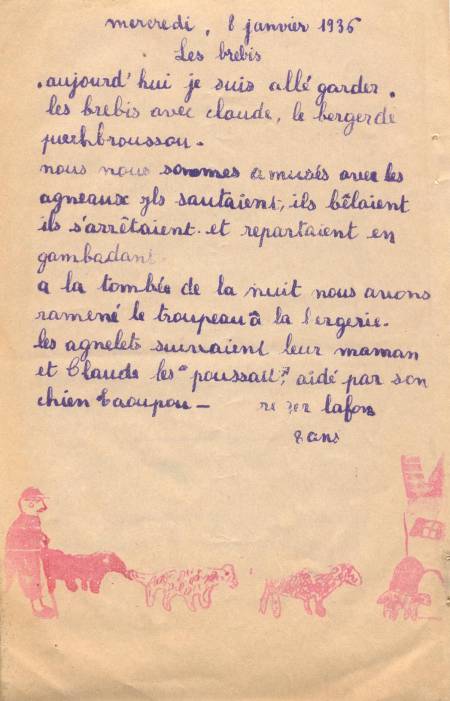 mercredi, 8 janvier 1936
Les brebis
.aujourd'hui je suis allé garder.
les brebis avec claude, le berger de
puechbroussou.
nous nous sommes amusés avec les
agneaux yls sautaient, ils bêlaient
ils s'arrêtaient. et repartaient en
gambadant.
a la tombée de la nuit nous avons
ramené le troupeau à la bergerie.
les agnelets suivaient leur maman
et Claude les "poussait", aidé par son
chien Laoupou—
lafon
8 ans